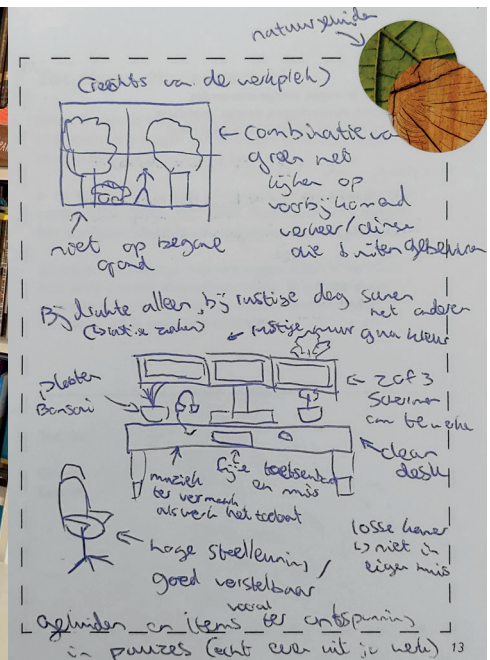 natuurgeluiden
(rechts van de werkplek)
← combinatie van
groen met
kijken op
voorbijkomend
verkeer/dingen
die buiten gebeuren
niet op begane
grond
Bij drukte alleen, bij rustige dag samen
met anderen
rustige muur qua kleur
planten
Bonsai
← 2 of 3
schermen
om te werken
clean
desk
muziek
ter vermaak
als werk het toelaat
fijne toetsenbord
en muis
losse kamer
is niet in
eigen huis
← hoge stoelleuning /
goed verstelbaar
vooral
geluiden en items ter ontspanning
in pauzes (echt even uit je werk)
13